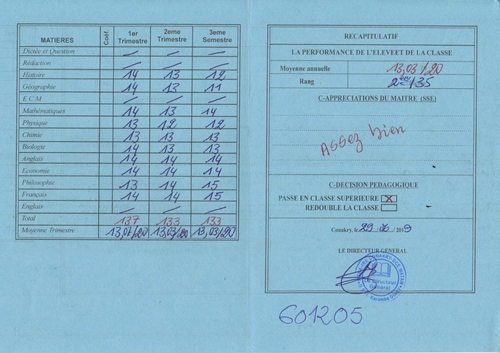 MATIERES Coéf. 1er Trimestre 2eme Trimestre 3eme Semestre
Dictée et Question
Rédaction
Histoire 14 13 12
Géographie 14 13 11
E.C.M
Mathématiques 14 13 14
Physique 13 12 12
Chimie 13 13 13
Biologie 14 13 13
Anglais 14 14 14
Economie 14 14 14
Philosophie 13 14 15
Français 14 14 15
Englais
Total 137 133 133
Moyenne Trimestre 13,03/20 13,03/20
RECAPITULATIF
LA PERFORMANCE DE L'ELEVEET DE LA CLASSE
Moyenne annuelle 13,03/20
Rang 2ème/35
C-APPRECIATIONS DU MAITRE (SSE)
Assez bien
C-DECISION PEDAGOGIQUE
PASSE EN CLASSE SUPERIEURE X
REDOUBLE LA CLASSE
Conakry, le 29 06/2019
LE DIRECTEUR GENERAL
Le Directeur
Général
601205